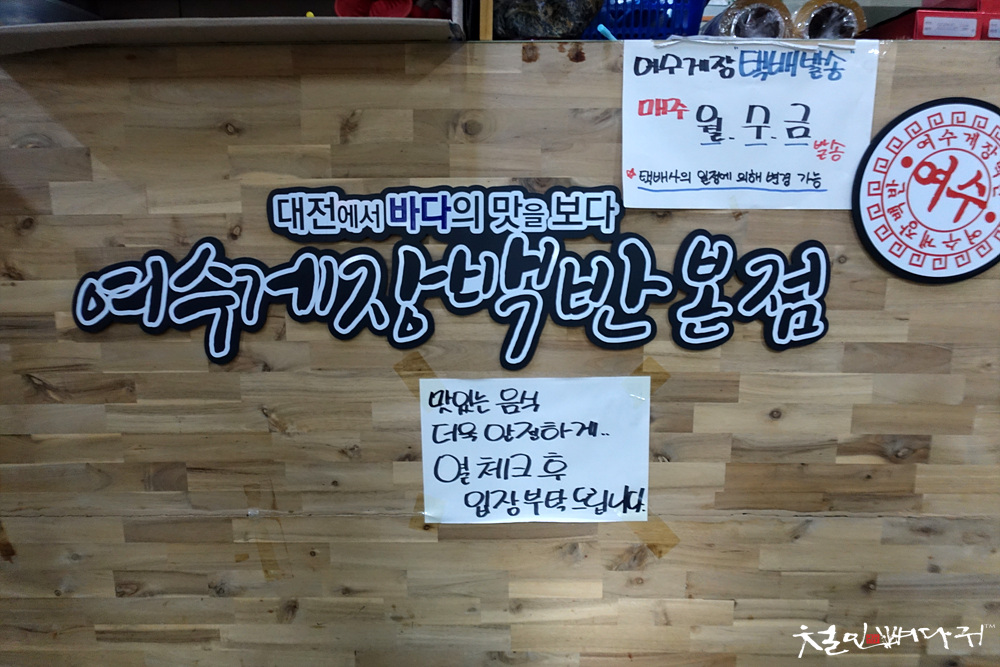 여수게장 "택배발송"
매주 월. 수. 금 발송
* 택배사의 일정에 의해 변경 가능
여수게장
여수
여수게장백반
대전에서 바다의 맛을 보다
여수게장백반본점
맛있는 음식
더욱 안전하게..
열체크 후
입장 부탁드립니다.